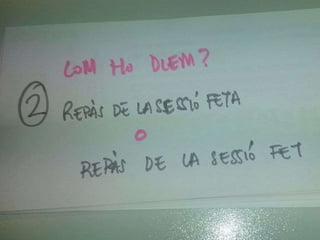 COM HO DIEM?
2 REPÀS DE LA SESSIÓ FETA
O
REPÀS DE LA SESSIÓ FET